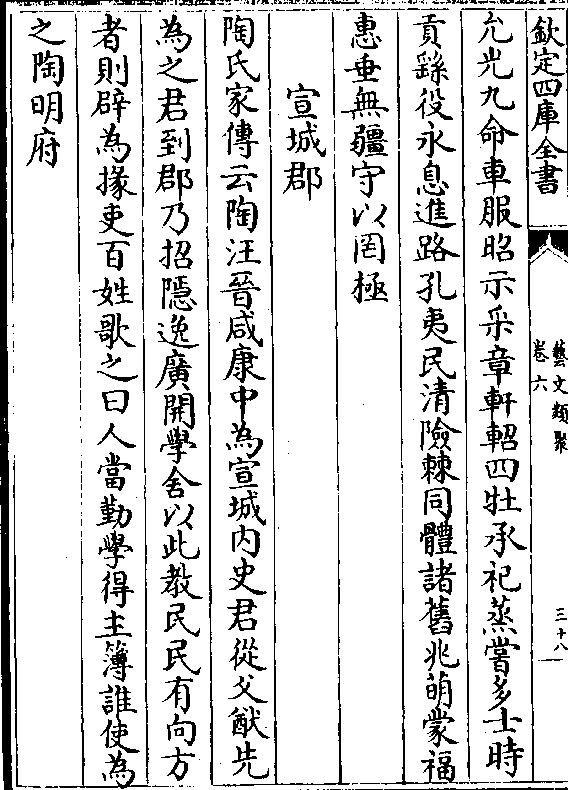 欽定四庫全書
藝文類聚
卷六
三十八
允光九命車服昭示采章軒軺四牡承祀蒸嘗多士時
貢繇役永息進路孔夷民清險棘同體諸舊兆萌蒙福
惠垂無疆守以罔極
宣城郡
陶氏家傳云陶汪晉咸康中為宣城内史君從父猷先
為之君到郡乃招隱逸廣開學舍以此教民民有向方
者則辟為掾吏百姓歌之曰人當勤學得主簿誰使為
之陶明府